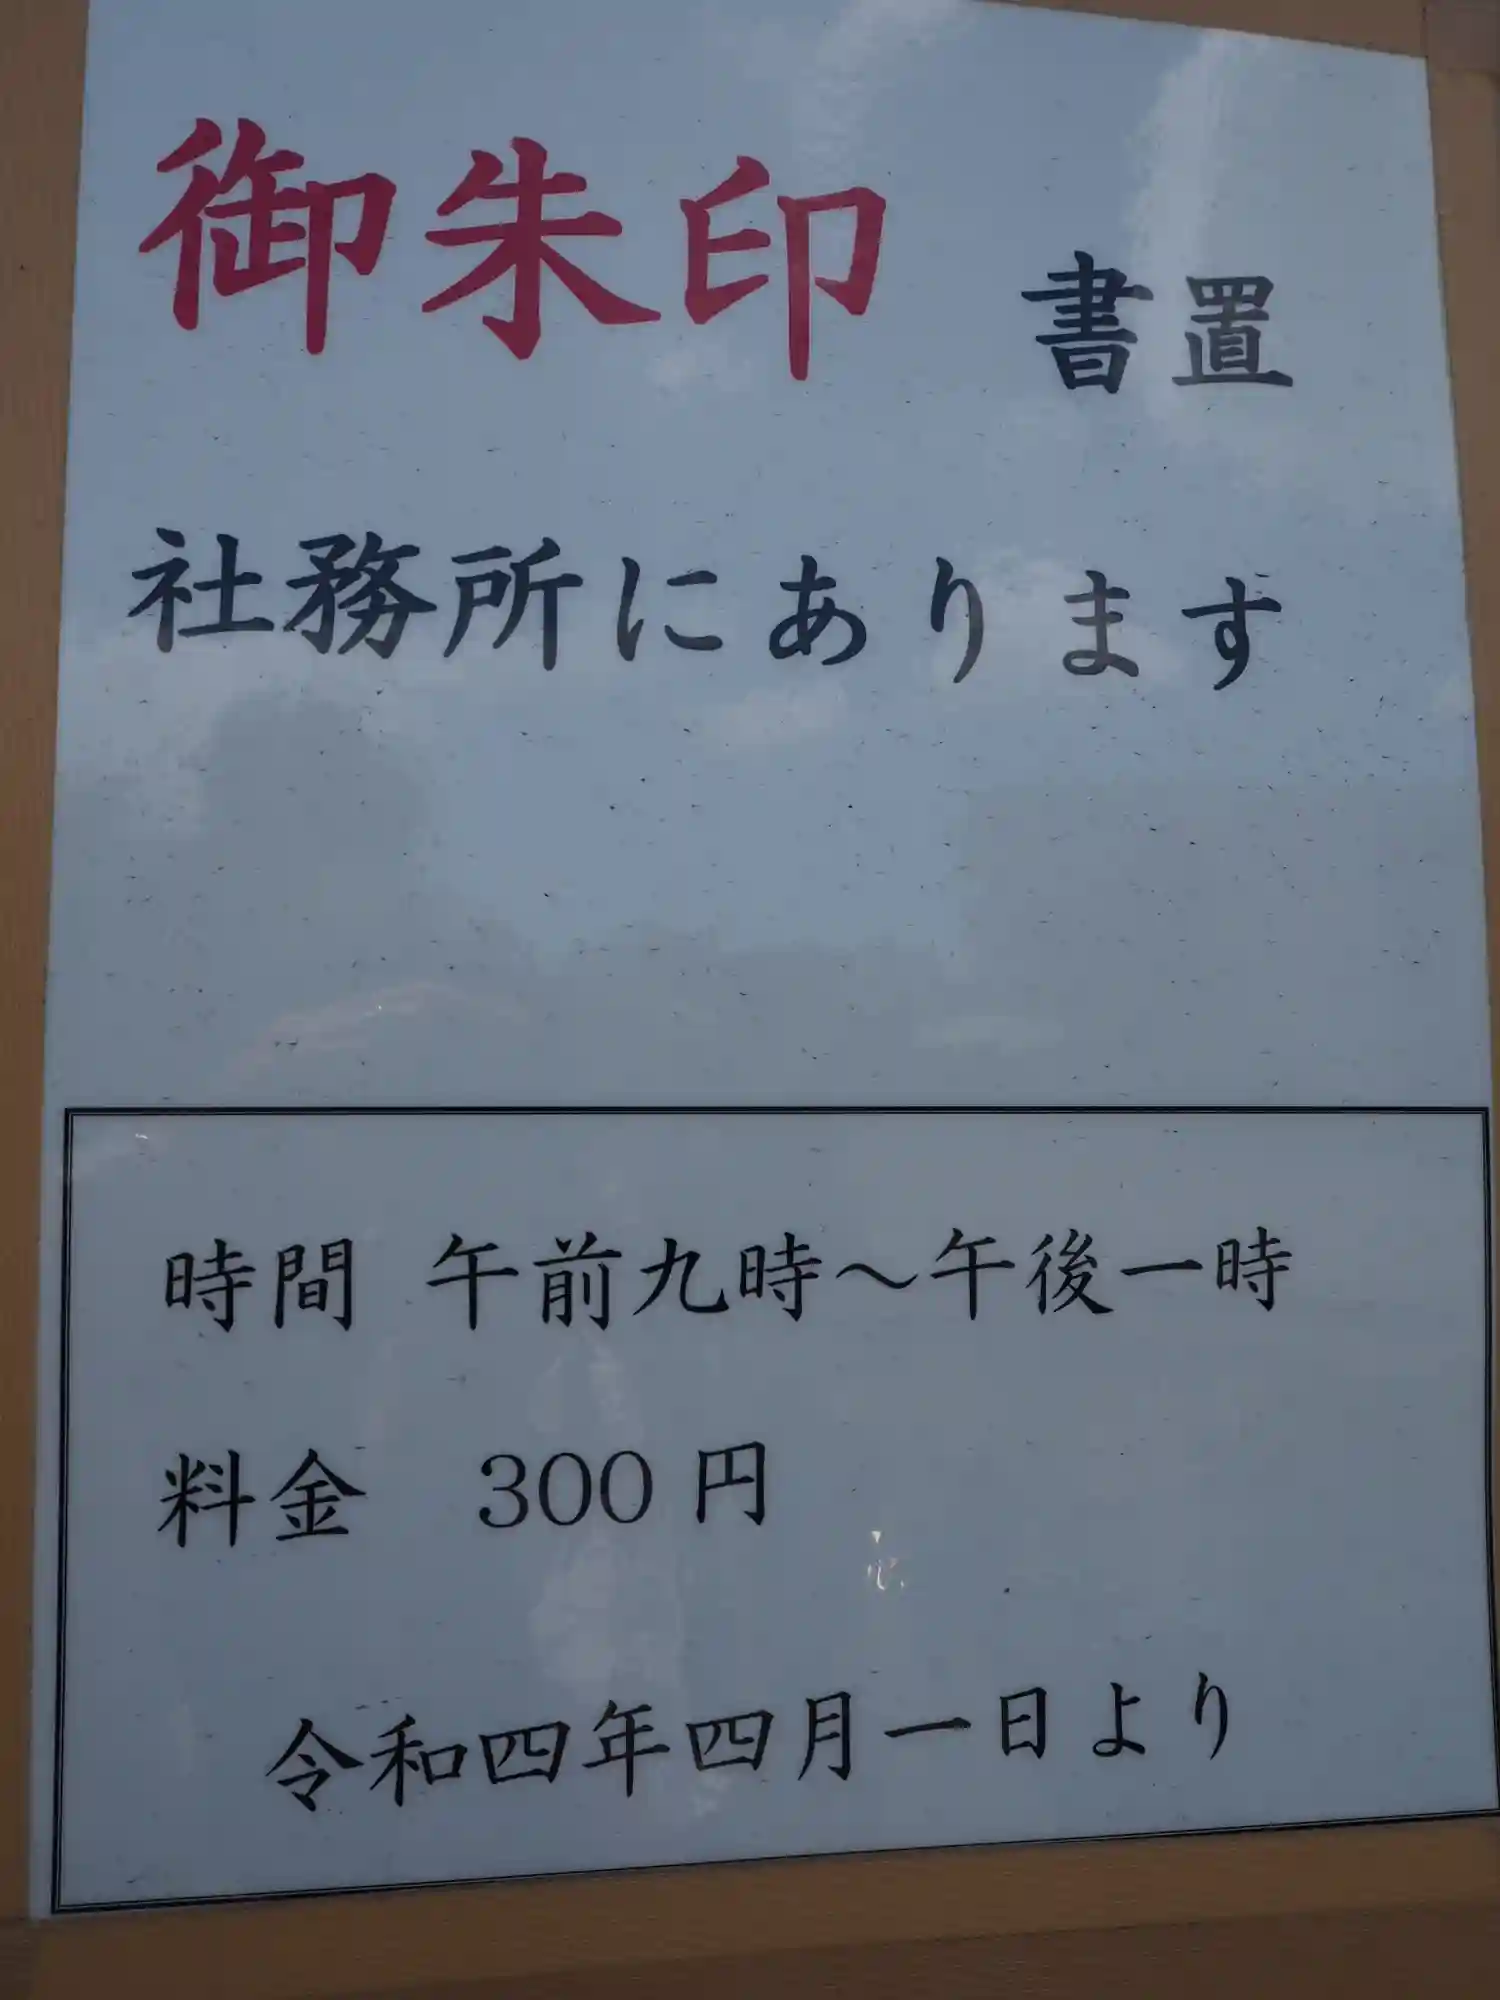 御朱印 書置
社務所にあります
時間 午前九時～午後一時
料金 300円
令和四年四月一日より